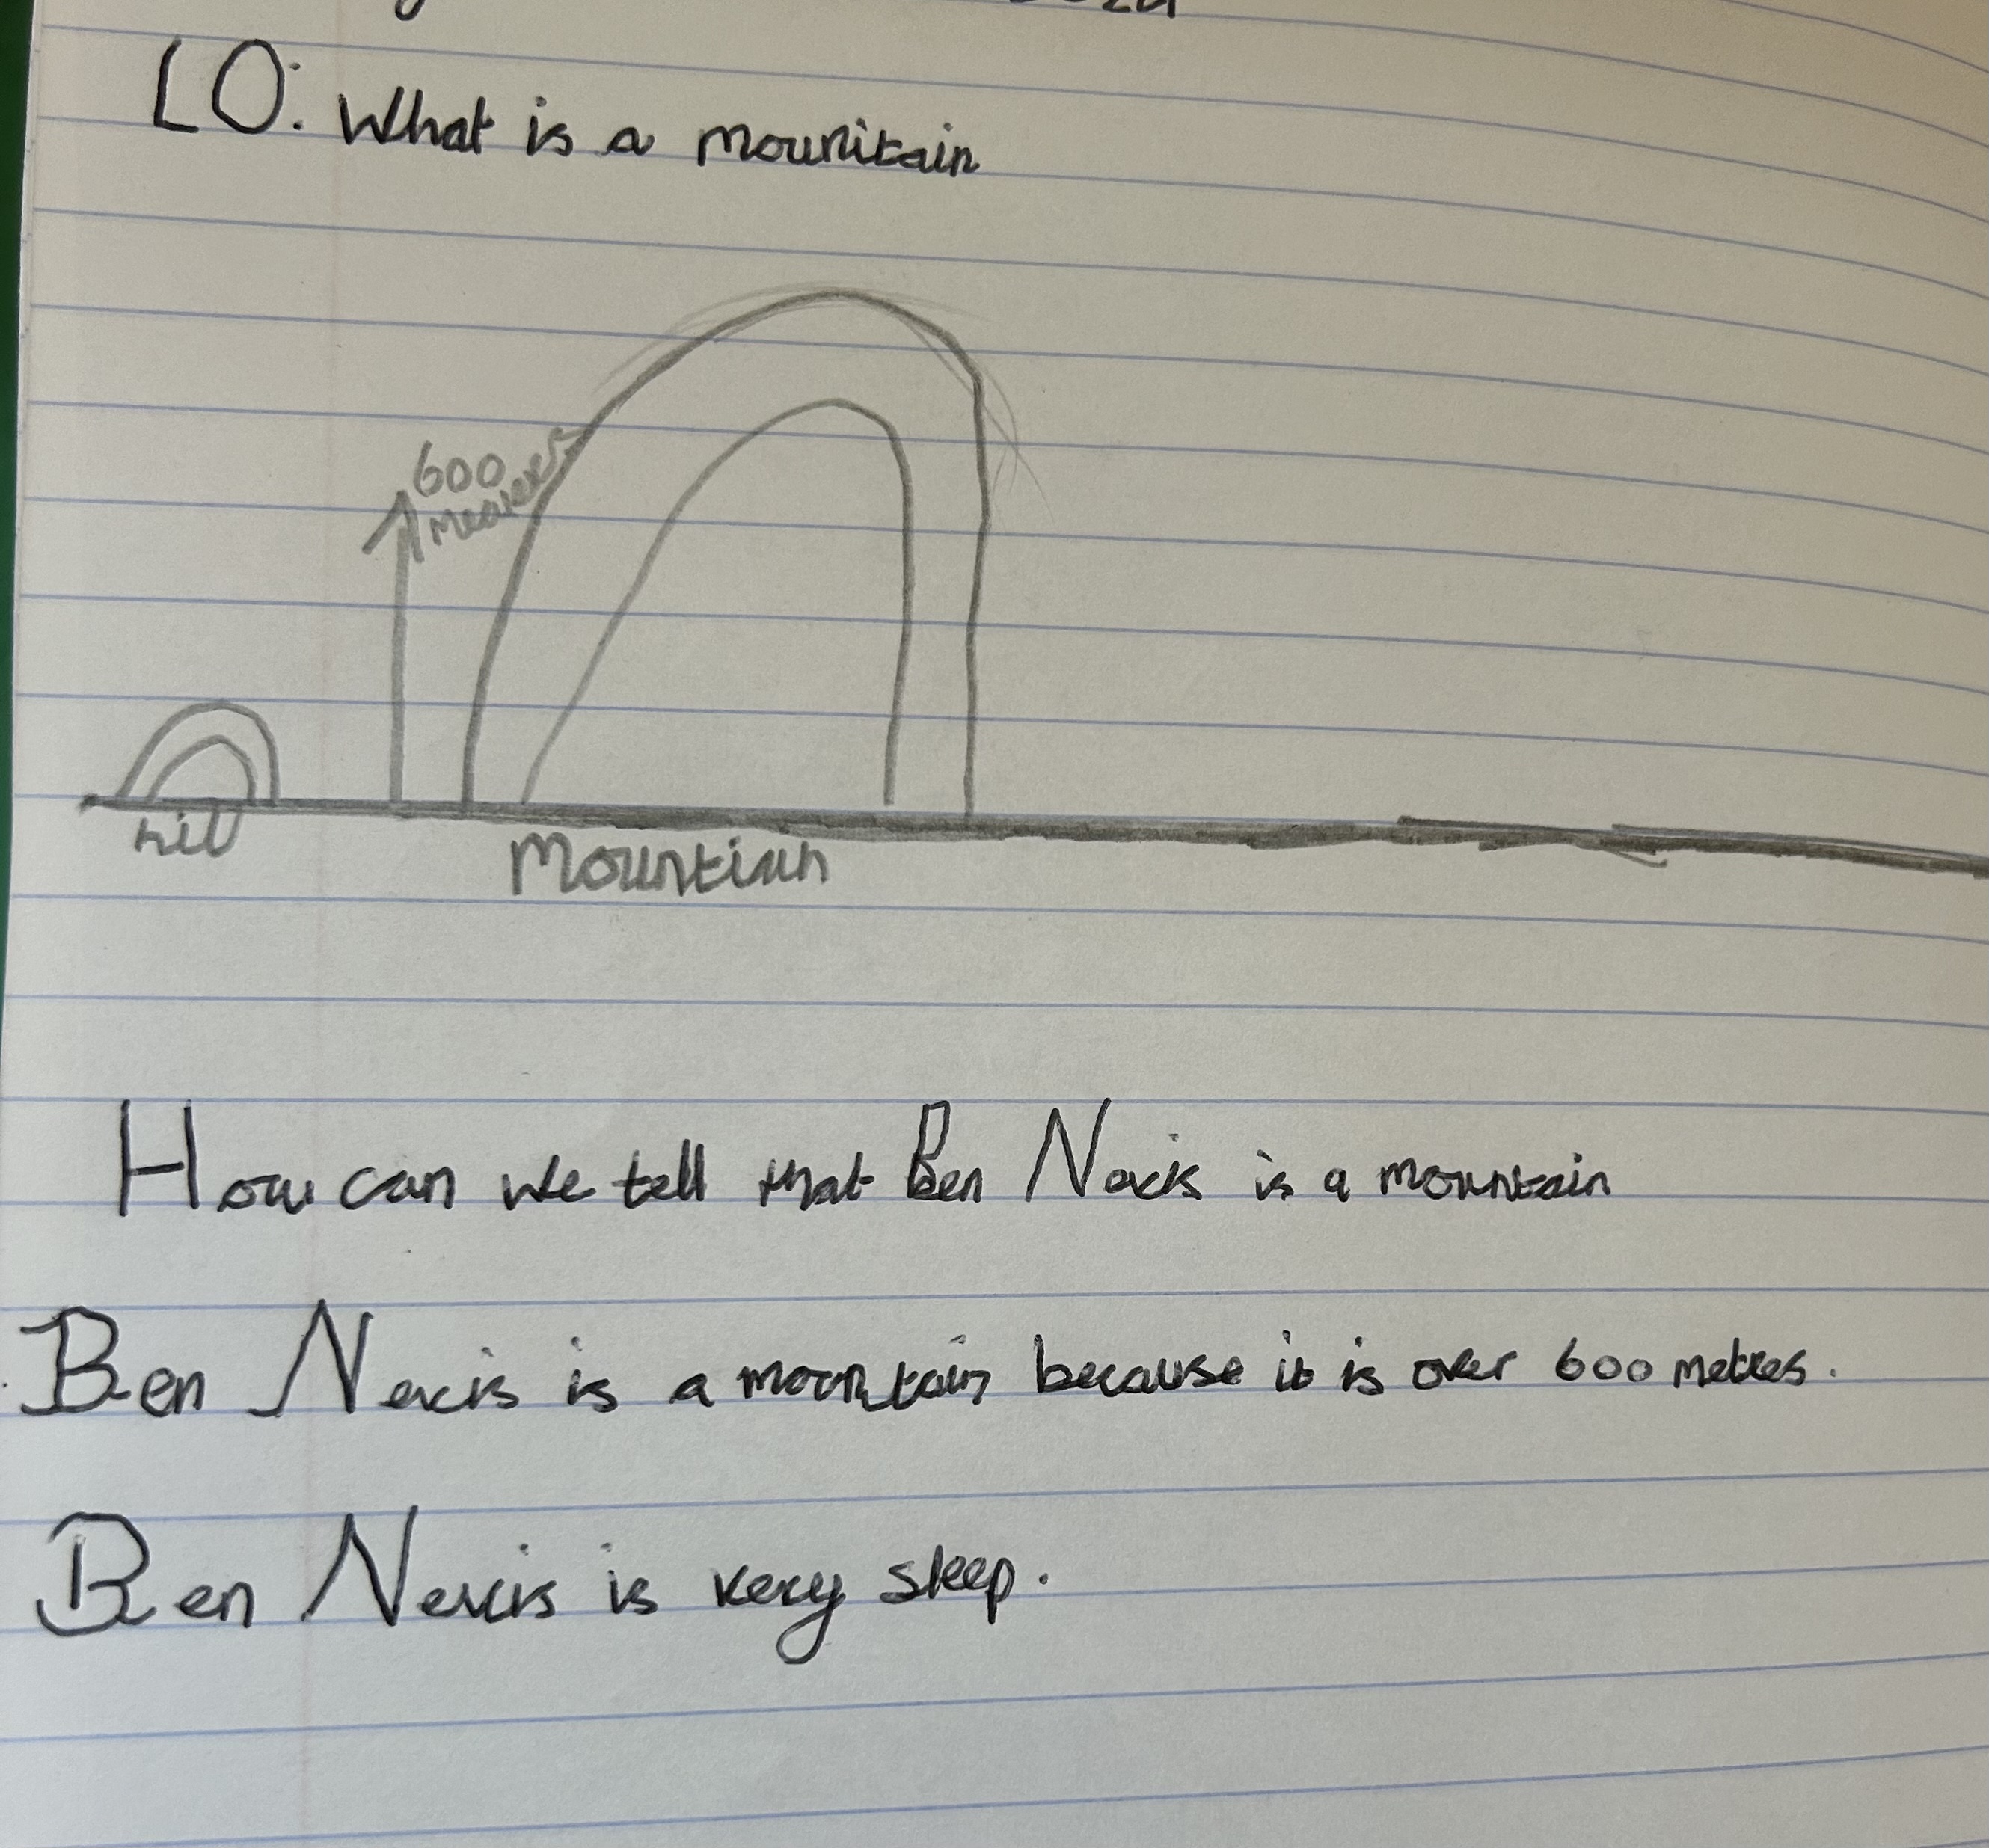 LO: What is a mounitain
600
hill
Mountian
How can we tell that Ben Nevis is a mountain
Ben Nevis is a mountain because it is over 600 metres.
Ben Nevis is very steep.